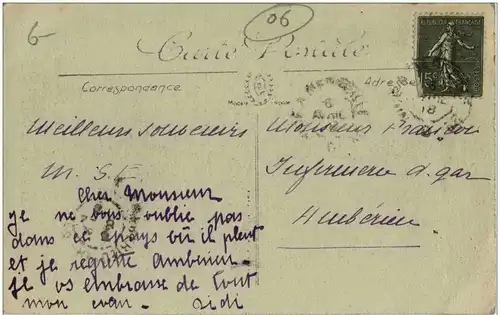 6
06
Carte Postale
Correspondance
Adresse
REPUBLIQUE FRANÇAISE
15c
Meilleurs souvenirs
M. S. E.
Cher Monsieur
je ne vous oublie pas
dans ce pays où il pleut
et je regrette Ambérieu.
Je vs embrasse de tout
mon cœur. Didi
Monsieur
Infirmerie d. gar
Ambérieu